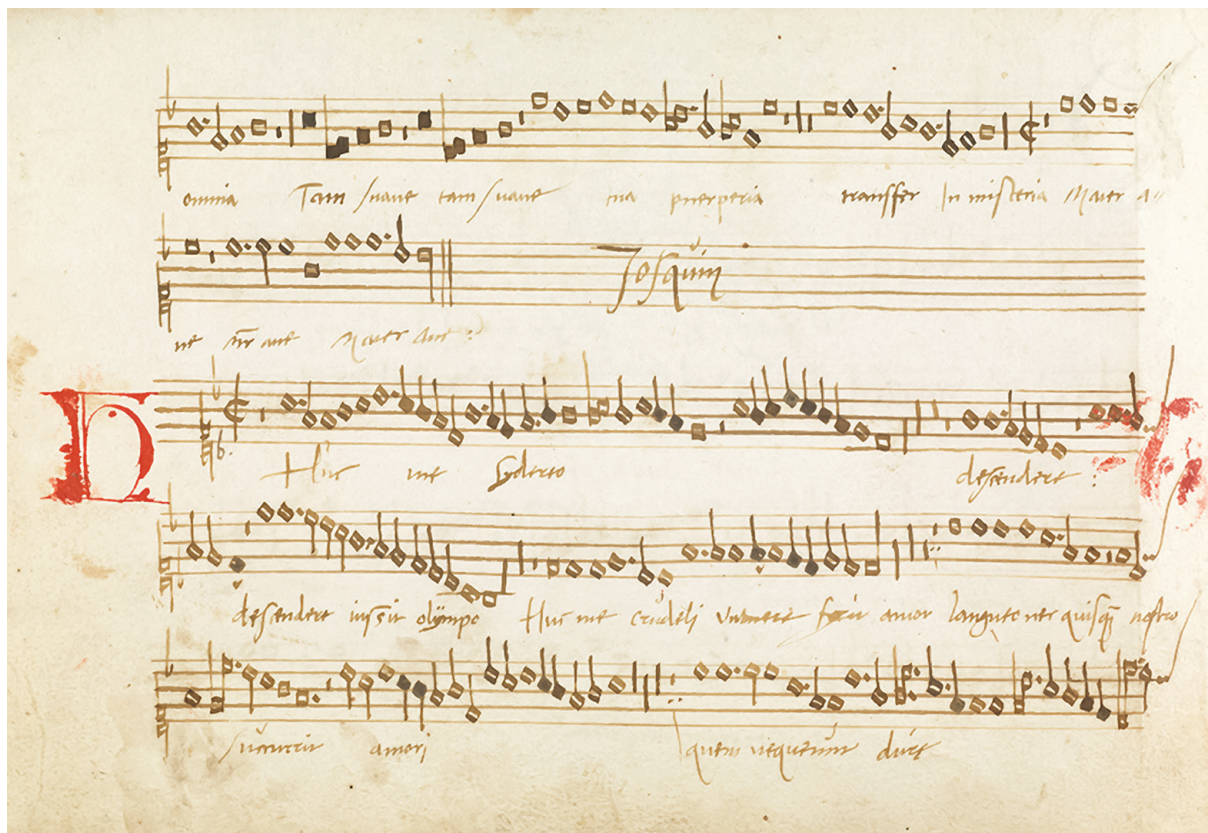 omnia Tam suave tam suave ma puerperia transfer In misteria Mater a
ne Mater ave
Josquin
Huc me sydereo desendere
desendere iussit olympo Huc me crudeli vulnere amor langueo nec quisq̃ nostro
succurrit amori quem nequeunt dure